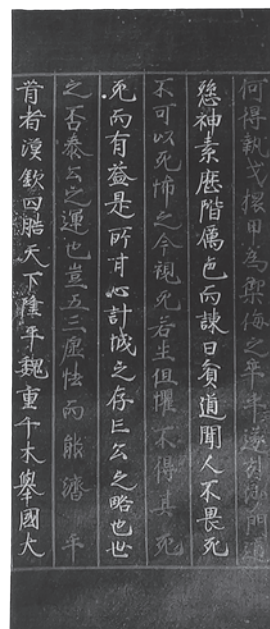 何得執戈擐甲為禦侮之卒乎遂引沙門道
愻神素歷階厲色而諫曰貧道聞人不畏死
不可以死怖之今視死若生但懼不得其死
死而有益是所甘心計城之存亡公之略也世
之否泰公之運也豈五三虛怯而能濟乎
昔者漢欽四皓天下隆平魏重干木舉國大